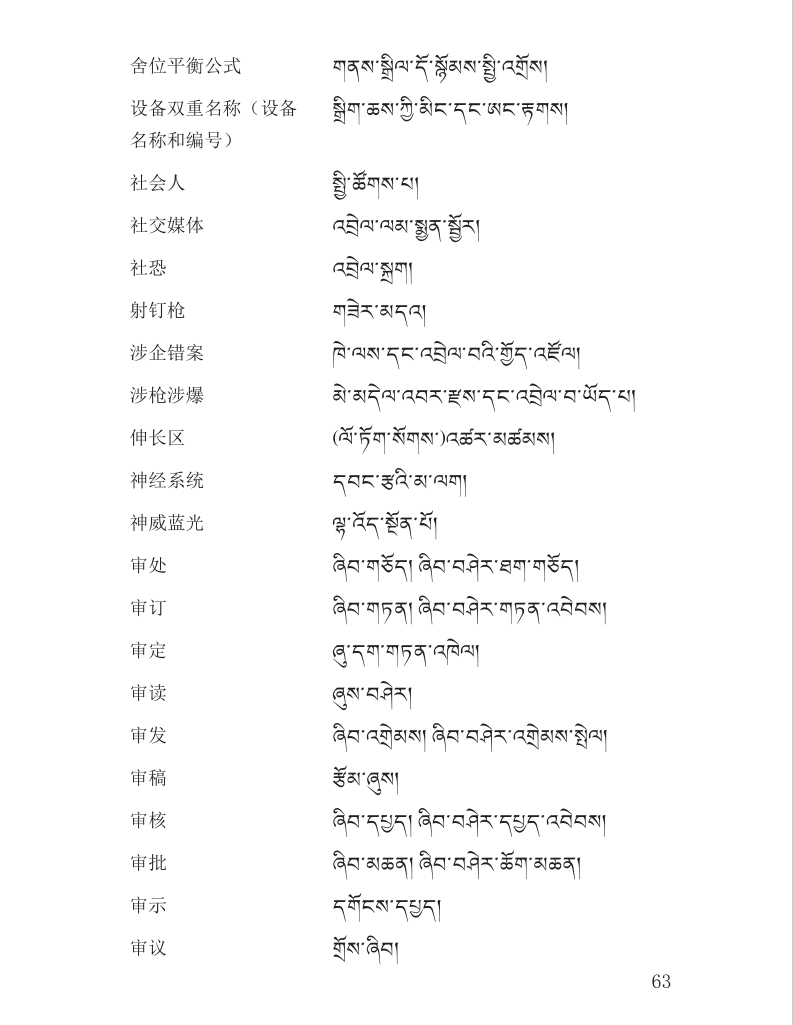 舍位平衡公式 གནས་སྒྲིལ་དོ་སྙོམས་སྤྱི་འགྲོས།
设备双重名称（设备 སྒྲིག་ཆས་ཀྱི་མིང་དང་ཨང་རྟགས།
名称和编号）
社会人 སྤྱི་ཚོགས་པ།
社交媒体 འབྲེལ་ལམ་སྨྱན་སྦྱོར།
社恐 འབྲེལ་སྐྲག
射钉枪 གཟེར་མདའ།
涉企错案 ཁེ་ལས་དང་འབྲེལ་བའི་གྱོད་འཛོལ།
涉枪涉爆 མེ་མདེལ་འབར་རྫས་དང་འབྲེལ་བ་ཡོད་པ།
伸长区 (ལོ་ཏོག་སོགས་)འཚར་མཚམས།
神经系统 དབང་རྩའི་མ་ལག
神威蓝光 ལྷ་འོད་སྔོན་པོ།
审处 ཞིབ་གཅོད། ཞིབ་བཤེར་ཐག་གཅོད།
审订 ཞིབ་གཏན། ཞིབ་བཤེར་གཏན་འབེབས།
审定 ཞུ་དག་གཏན་འཁེལ།
审读 ཞུས་བཤེར།
审发 ཞིབ་འགྲེམས། ཞིབ་བཤེར་འགྲེམས་སྤེལ།
审稿 རྩོམ་ཞུས།
审核 ཞིབ་དཔྱད། ཞིབ་བཤེར་དཔྱད་འབེབས།
审批 ཞིབ་མཆན། ཞིབ་བཤེར་ཆོག་མཆན།
审示 དགོངས་དཔྱད།
审议 གྲོས་ཞིབ།
63